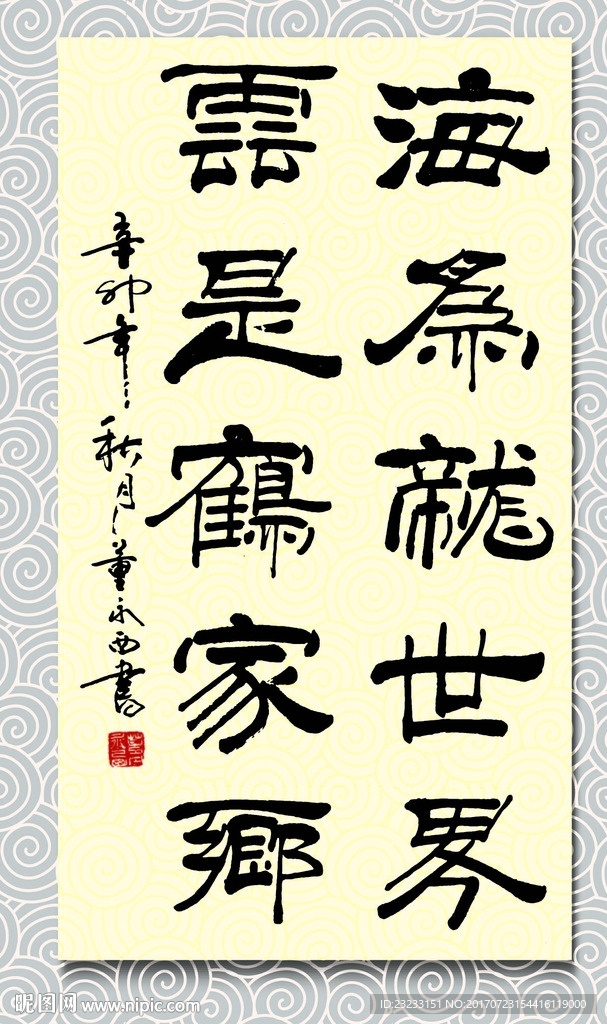 海為龍世界
雲是鶴家鄉
辛卯年秋月董永西書
昵图网 www.nipic.com
ID:23233151 NO:20170723154416119000